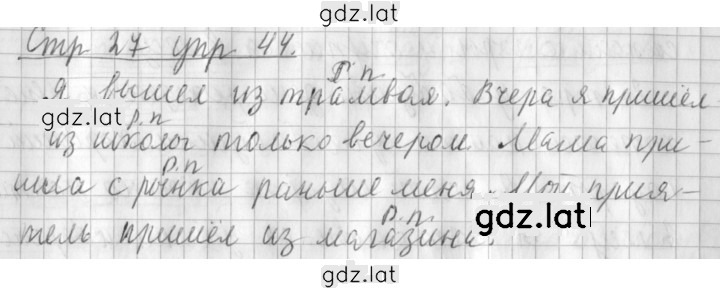 gdz.lat
Стр 27 упр 44.
Р.п
Я вышел из трамвая. Вчера я пришёл
gdz.lat
Р.п
из школы только вечером. Мама при-
Р.п
шла с рынка раньше меня. Мой прия-
Р.п.
gdz.lat
тель пришёл из магазина.
gdz.lat